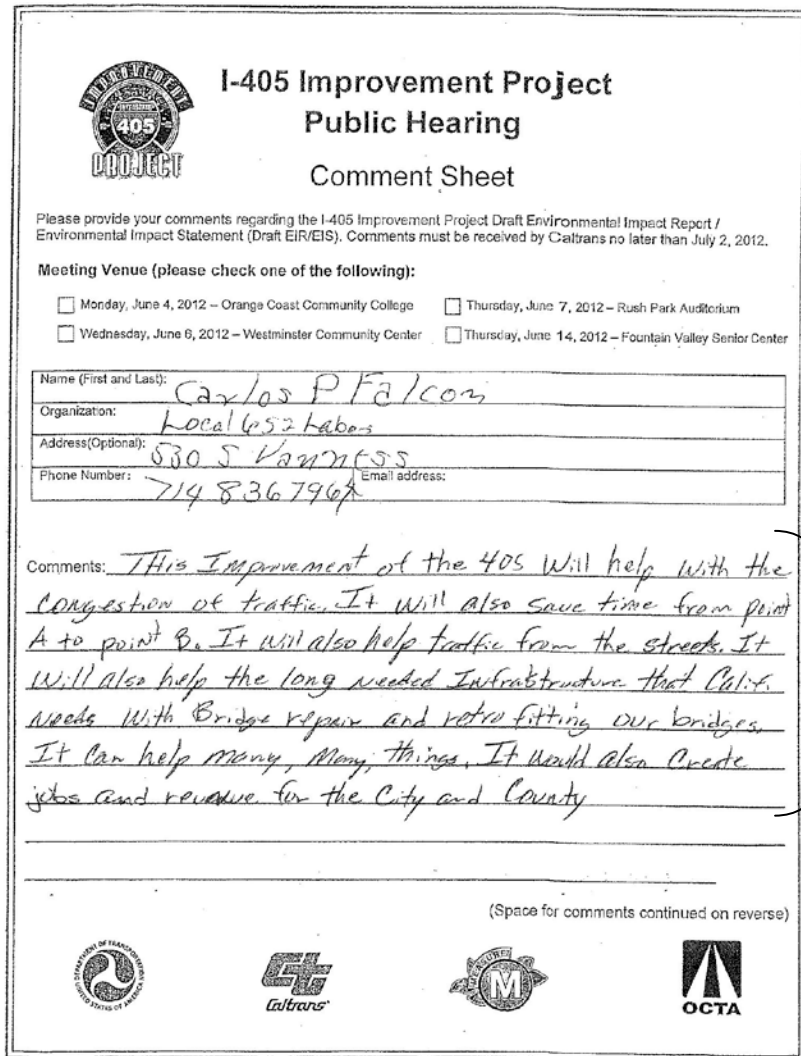 IMPROVEMENT
INTERSTATE
405
PROJECT
I-405 Improvement Project
Public Hearing
Comment Sheet
Please provide your comments regarding the I-405 Improvement Project Draft Environmental Impact Report /
Environmental Impact Statement (Draft EIR/EIS). Comments must be received by Caltrans no later than July 2, 2012.
Meeting Venue (please check one of the following):
Monday, June 4, 2012 – Orange Coast Community College
Thursday, June 7, 2012 – Rush Park Auditorium
Wednesday, June 6, 2012 – Westminster Community Center
Thursday, June 14, 2012 – Fountain Valley Senior Center
Name (First and Last): Carlos P Falcon
Organization: Local 652 Labor
Address(Optional): 530 S Vanness
Phone Number: 714 836 7964 Email address:
Comments: THis Improvement of the 405 Will help with the
Congestion of traffic. It will also Save time from point
A to point B. It will also help traffic from the streets. It
Will also help the long needed Infrastructure that Calif.
Needs With Bridge repair and retro fitting our bridges.
It Can help many, Many, things. It would also Create
jobs and revenue for the City and County
(Space for comments continued on reverse)
DEPARTMENT OF TRANSPORTATION
UNITED STATES OF AMERICA
Caltrans
MEASURE
M
OCTA